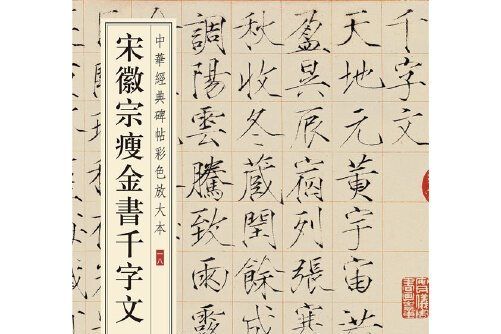 千字文
天地元黃宇宙
盈昃辰宿列張寒
秋收冬藏閏餘成
調陽雲騰致雨露
中華經典碑帖彩色放大本 一八
宋徽宗瘦金書千字文